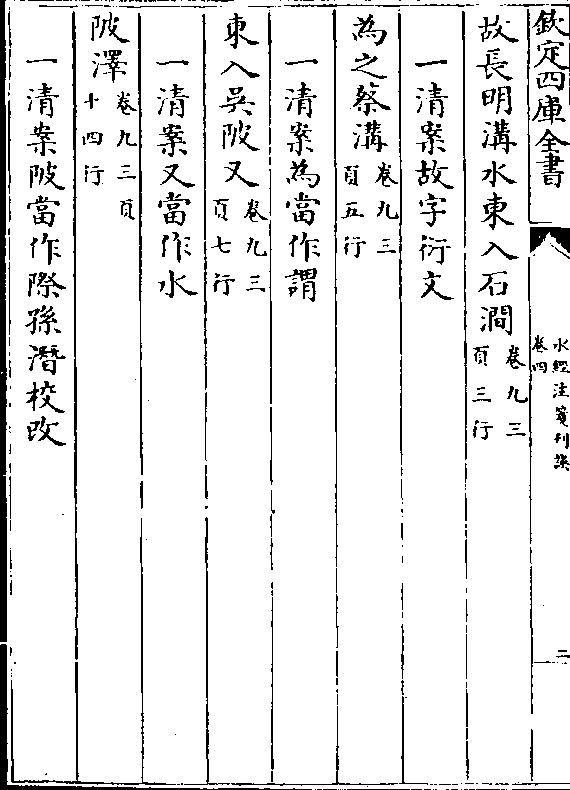 欽定四庫全書
水經注箋刊誤
卷四
二
故長明溝水東入石澗卷九三頁三行
一清案故字衍文
為之蔡溝卷九三頁五行
一清案為當作謂
東入吳陂又卷九三頁七行
一清案又當作水
陂澤卷九三頁十四行
一清案陂當作際孫潛校改